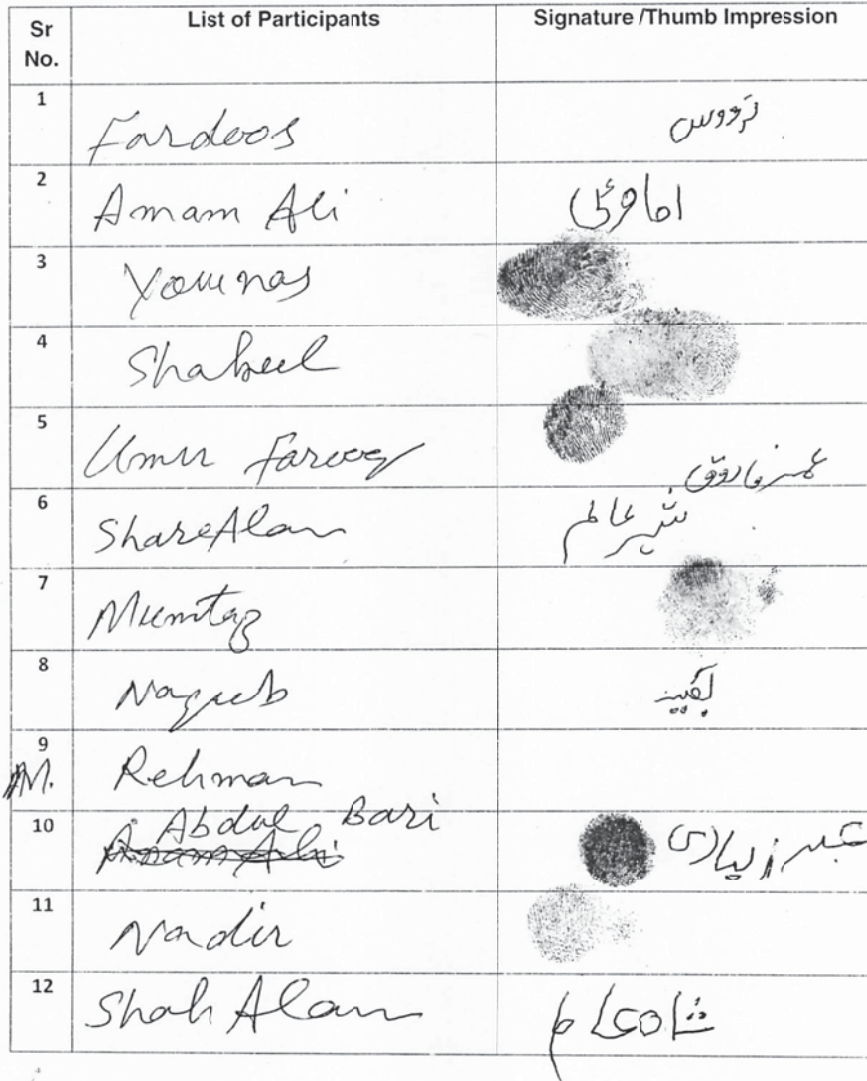 Sr No. List of Participants Signature /Thumb Impression
1 Fardoos
2 Amam Ali
3 Younas
4 Shabeel
5 Umer Farooq عمر فاروق
6 ShareAlam شیر عالم
7 Mumtaz
8 Naqeeb
9 M. Rehman
10 Abdul Bari
Amam Ali
11 Nadir
12 Shah Alam